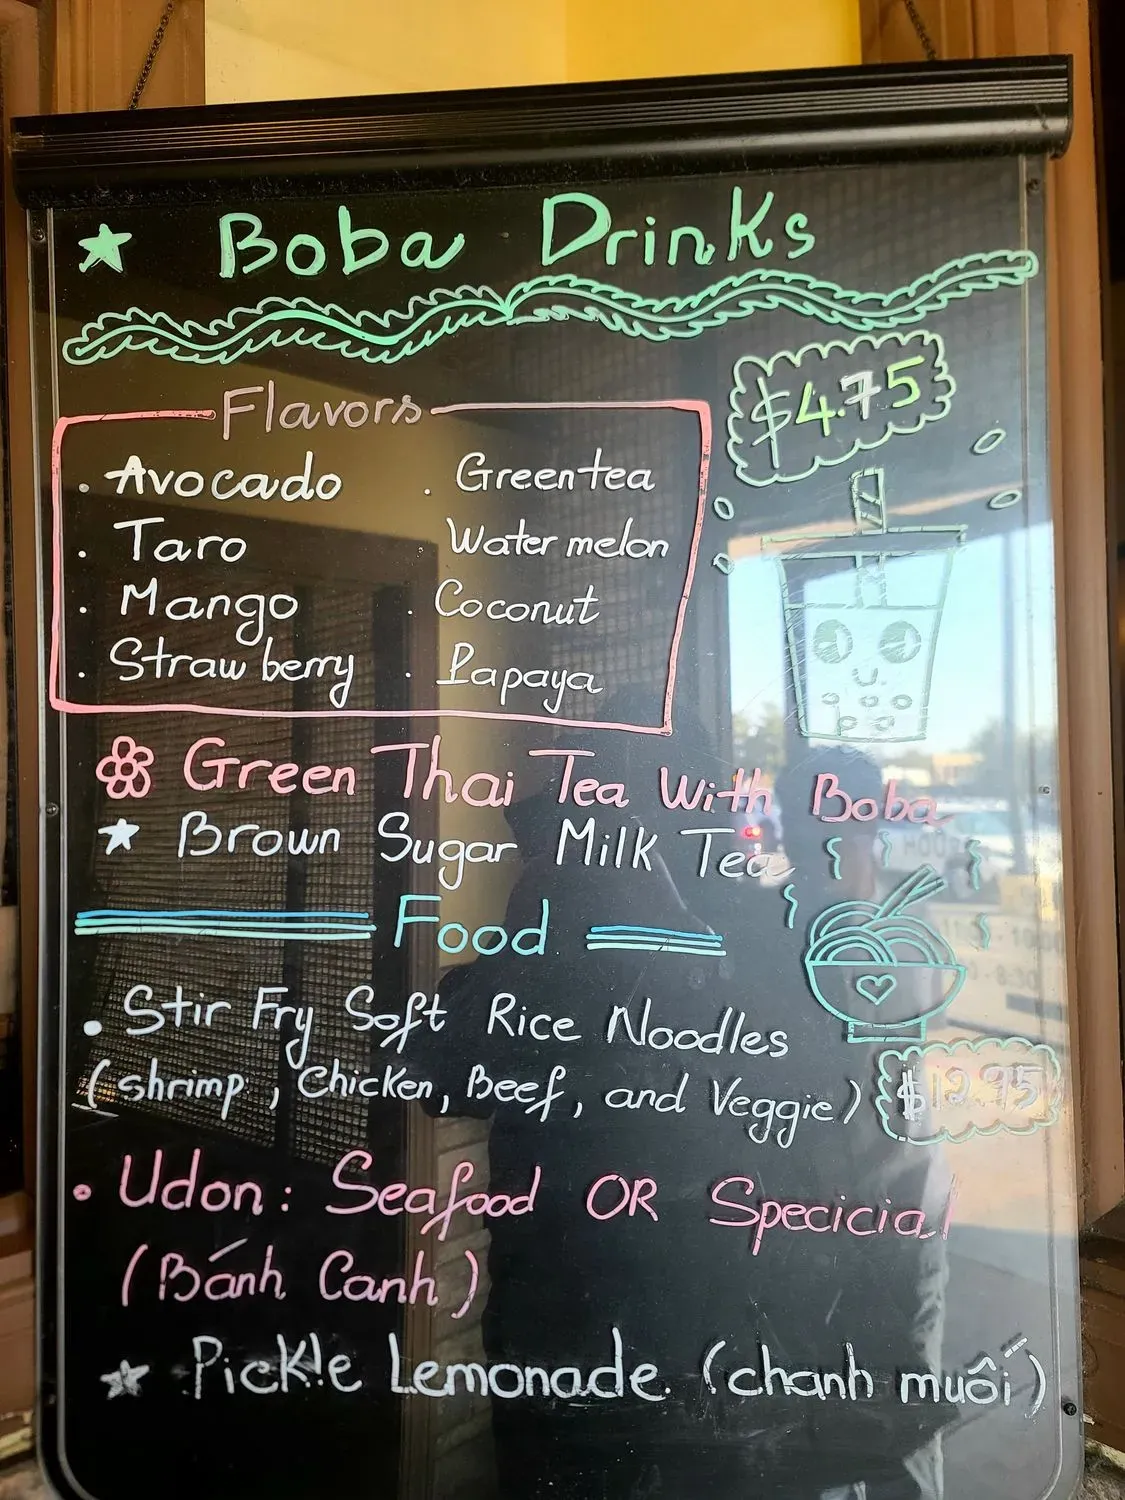 Boba Drinks
$4.75
Flavors
. Avocado . Green tea
. Taro . Water melon
. Mango . Coconut
. Straw berry . Papaya
Green Thai Tea With Boba
Brown Sugar Milk Tea
Food
. Stir Fry Soft Rice Noodles
(shrimp, Chicken, Beef, and Veggie)
$12.95
. Udon: Seafood OR Specicial
(Bánh Canh)
Pickle Lemonade. (chanh muối)